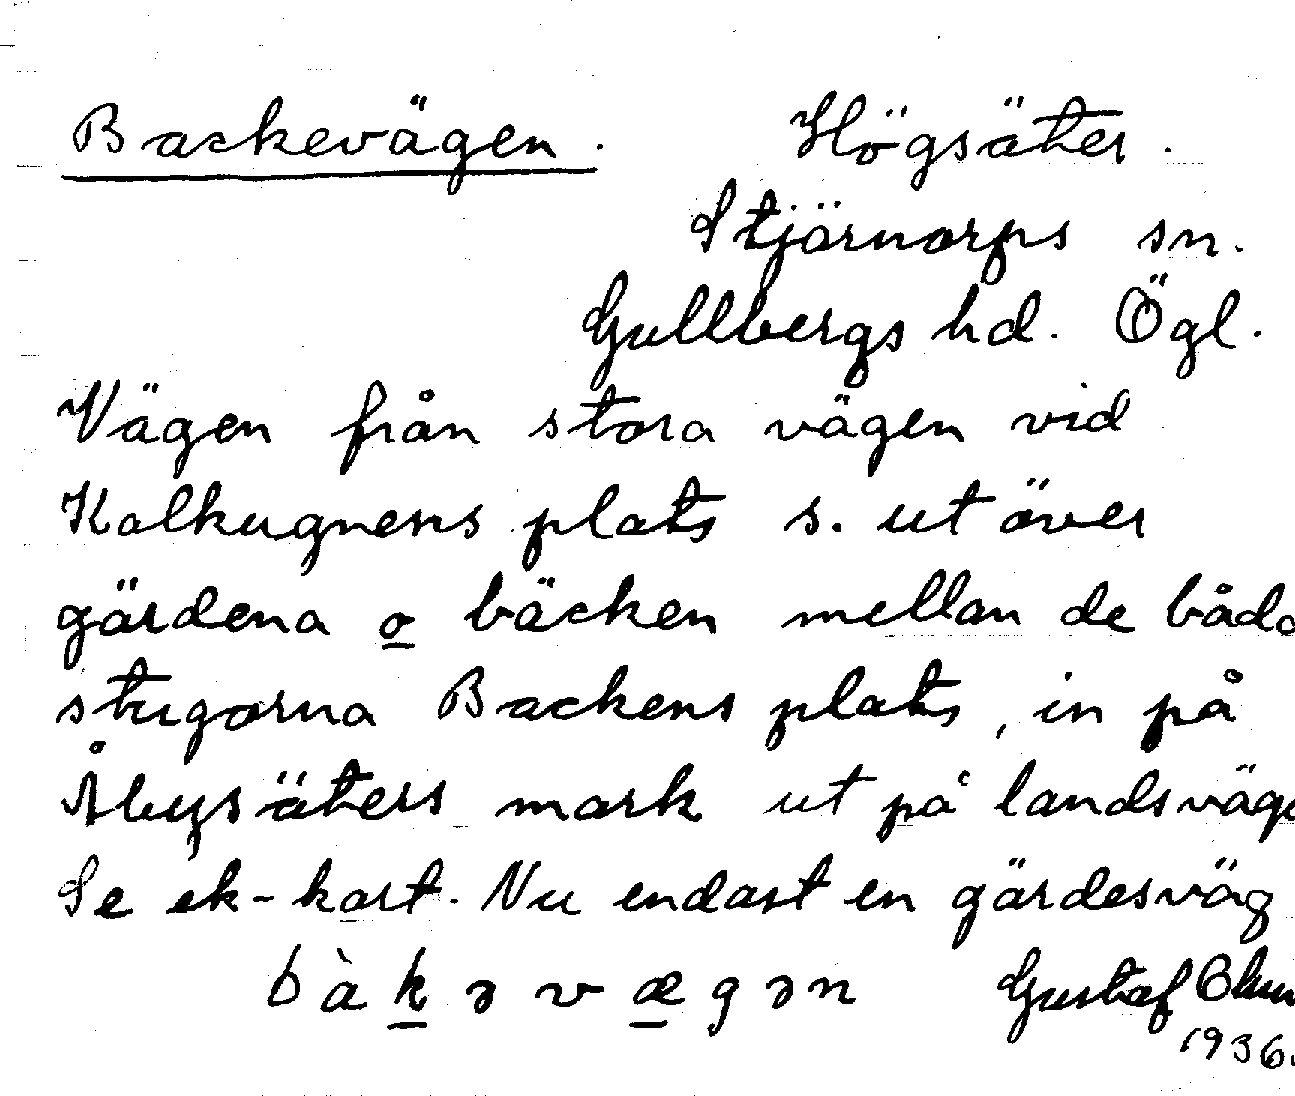 Backevägen. Högsäter.
Stjärnorps sn.
Gullbergs hd. Ögl.
Vägen från stora vägen vid
Kalkugnens plats s. ut över
gärdena o bäcken mellan de båda
stugorna Backens plats, in på
Åbysäters mark ut på landsväge
Se ek-kart. Nu endast en gärdesväg
bàkəvægən Gustaf
1936.